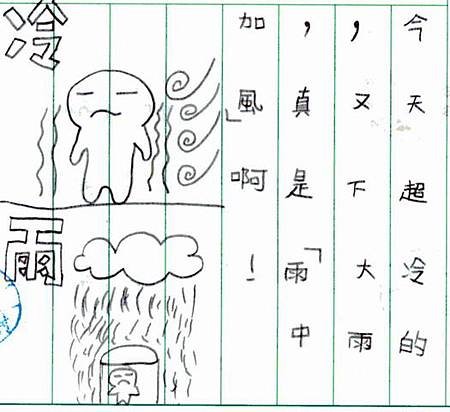 今天超冷的
，又下大雨
，真是「雨中
加風」啊！
冷
雨